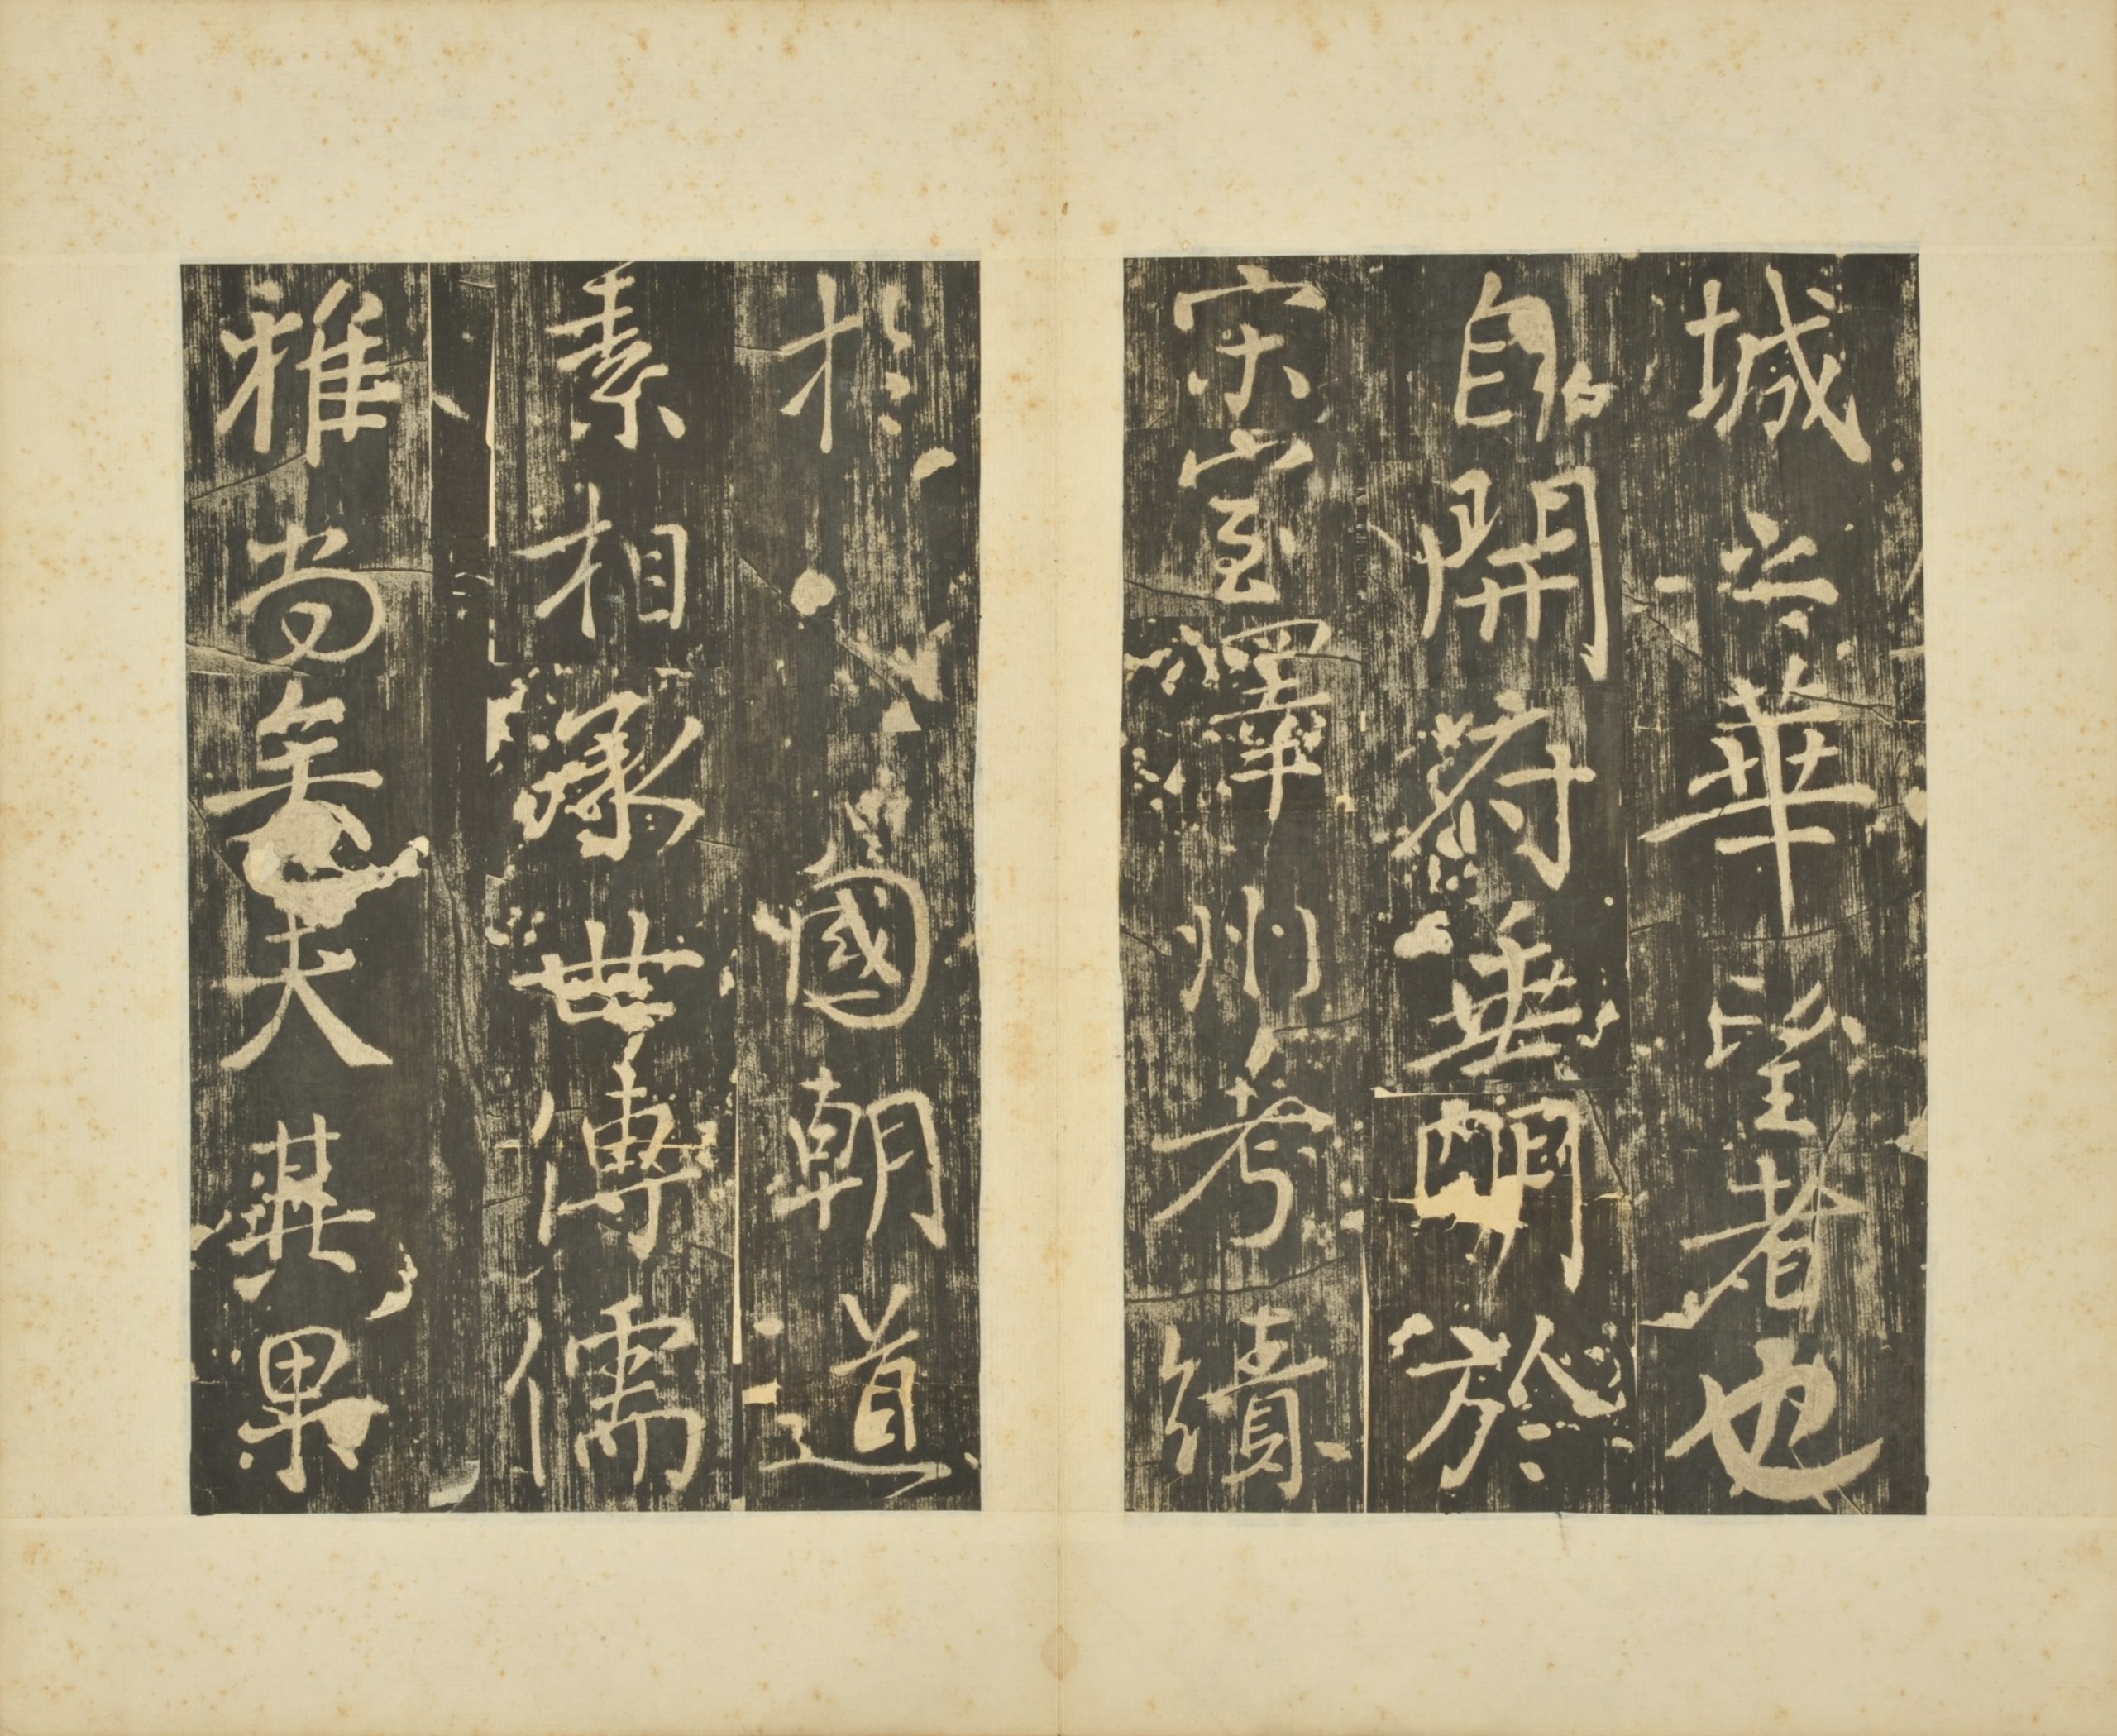 城之華望者也
自開府垂明於
宋室澤州考績
於國朝道
素相承世傳儒
雅尚矣夫其果